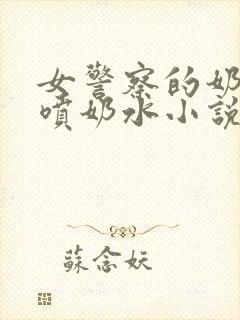 女警察的奶
噴奶水小說
蘇念妖